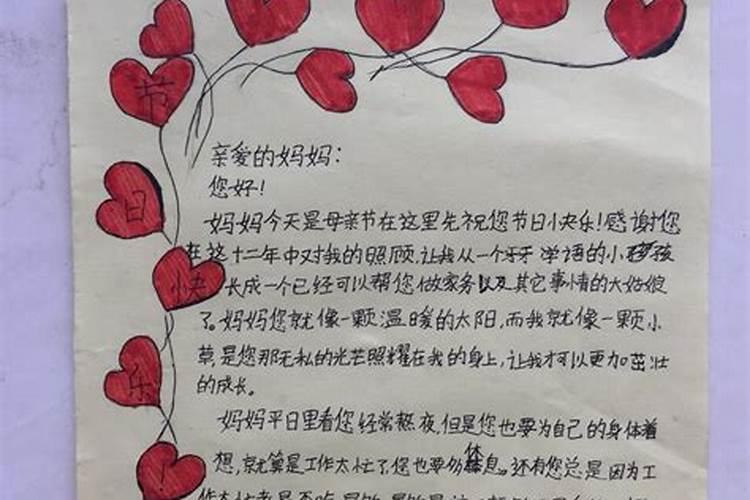 节
日
快
乐
！
亲爱的妈妈：
您好！
妈妈今天是母亲节在这里先祝您节日快乐！感谢您
在这十二年中对我的照顾，让我从一个牙牙学语的小孩
长成一个已经可以帮您做家务以及其它事情的大姑娘
了。妈妈您就像一颗温暖的太阳，而我就像一颗小
草，是您那无私的光芒照耀在我的身上，让我才可以更加茁壮
的成长。
妈妈平日里看您经常熬夜，但是您也要为自己的身体着
想，就算是工作太忙了，您也要休息。还有您总是因为工